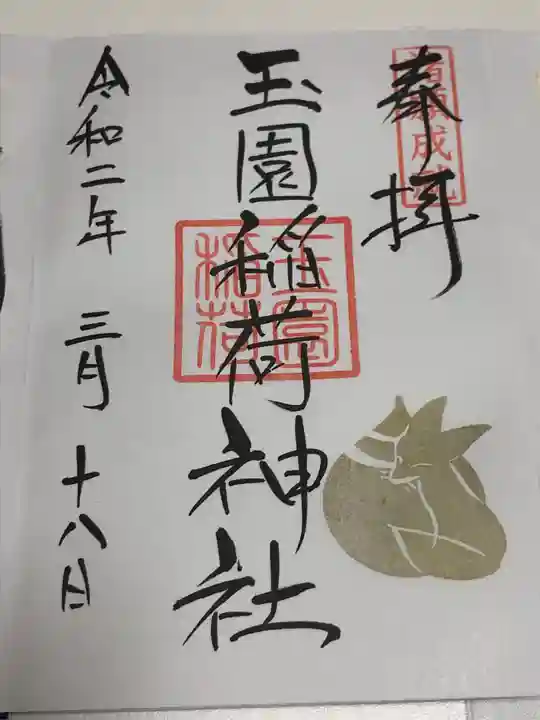 奉拝
諸願成就
玉園稲荷神社
玉園
稲荷
令和二年 三月 十八日